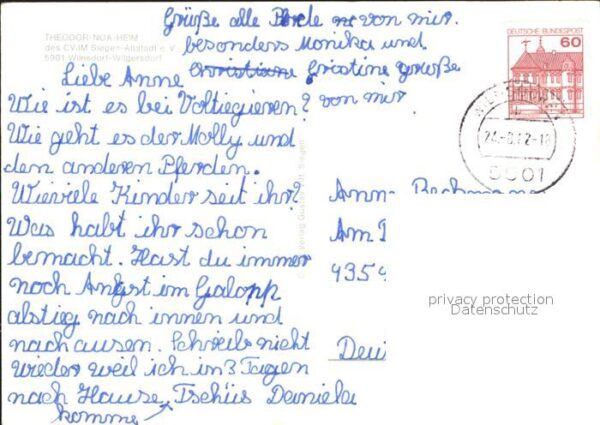 Grüße alle Pferde von mir.
besonders Monika und
Cristine grüße
von mir
THEODOR-NOA-HEIM
des CVJM Siegen-Altstadt e.V.
5901 Wilnsdorf-Wilgersdorf
Liebe Anne
Wie ist es bei Voltiegieren?
Wie geht es der Molly und
den anderen Pferden.
Wieviele Kinder seit ihr?
Was habt ihr schon
bemacht. Hast du immer
noch Angst im Galopp
abstieg nach innen und
nach ausen. Schreib nicht
wieder weil ich in 3 Tagen
nach Hause Tschüs Daniela
komme
DEUTSCHE BUNDESPOST
60
5901
Am
4359
privacy protection
Datenschutz